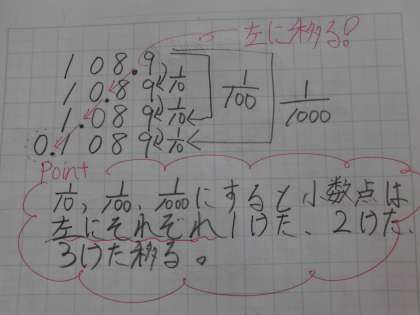 左に移る!
108.9
10.89
1.089
0.1089
1/10
1/10
1/10
1/100
1/1000
Point
1/10, 1/100, 1/1000にすると小数点は
左にそれぞれ1けた、2けた、
3けた移る。